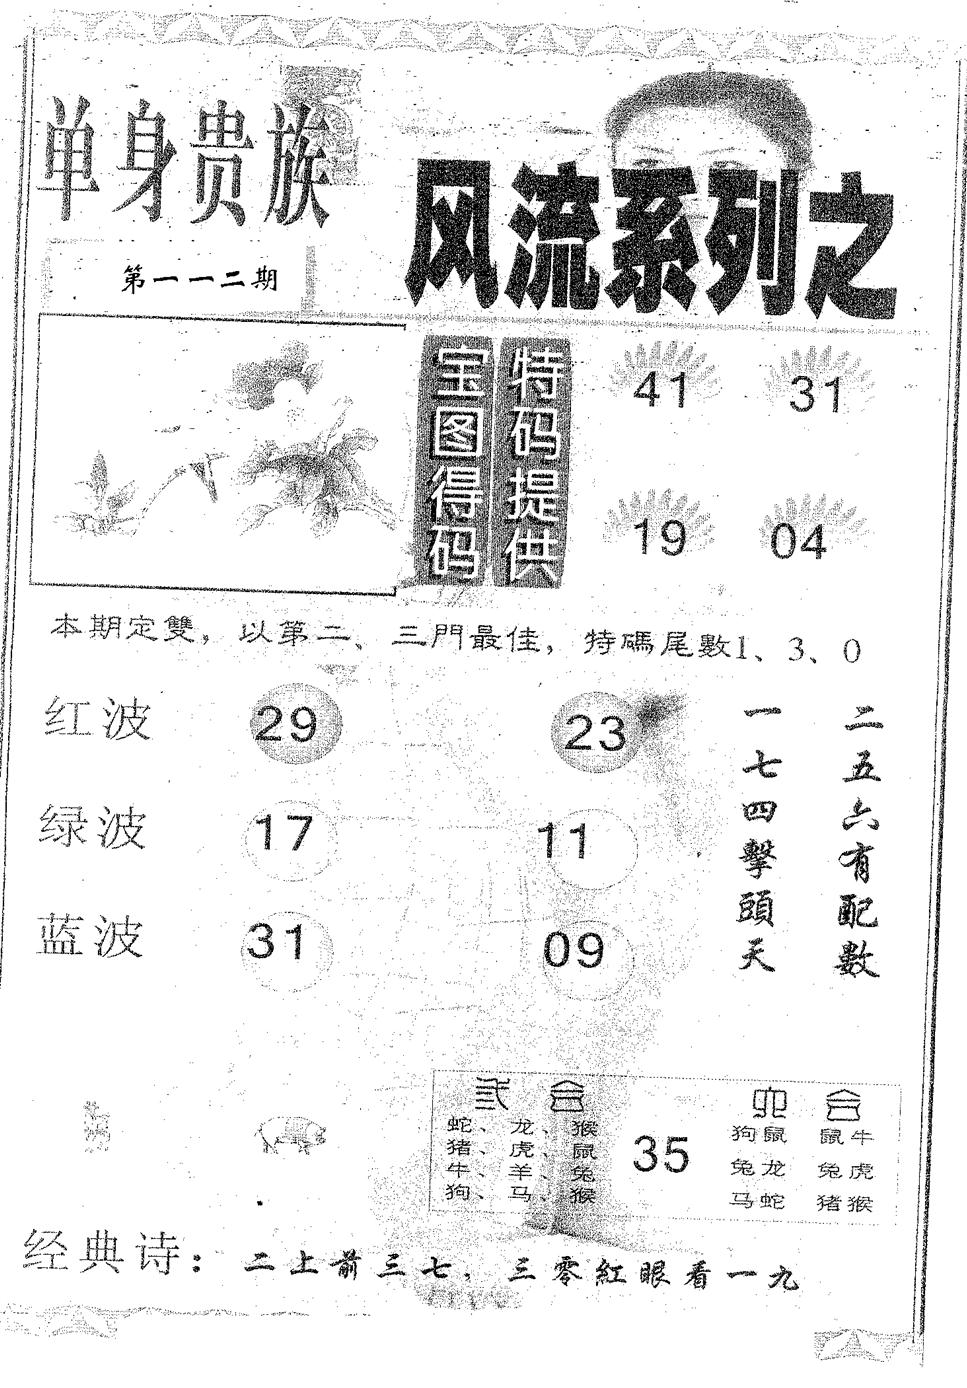 单身贵族
风流系列之
第一一二期
宝图得码
特码提供
41 31
19 04
本期定雙，以第二、三門最佳，特碼尾數1、3、0
红波 29 23
绿波 17 11
蓝波 31 09
二五六有配數
一七四擊頭天
合
蛇、龙、猴
猪、虎、鼠
牛、羊、兔
狗、马、猴
35
六合
狗鼠 鼠牛
兔龙 兔虎
马蛇 猪猴
经典诗：二上前三七，三零紅眼看一九